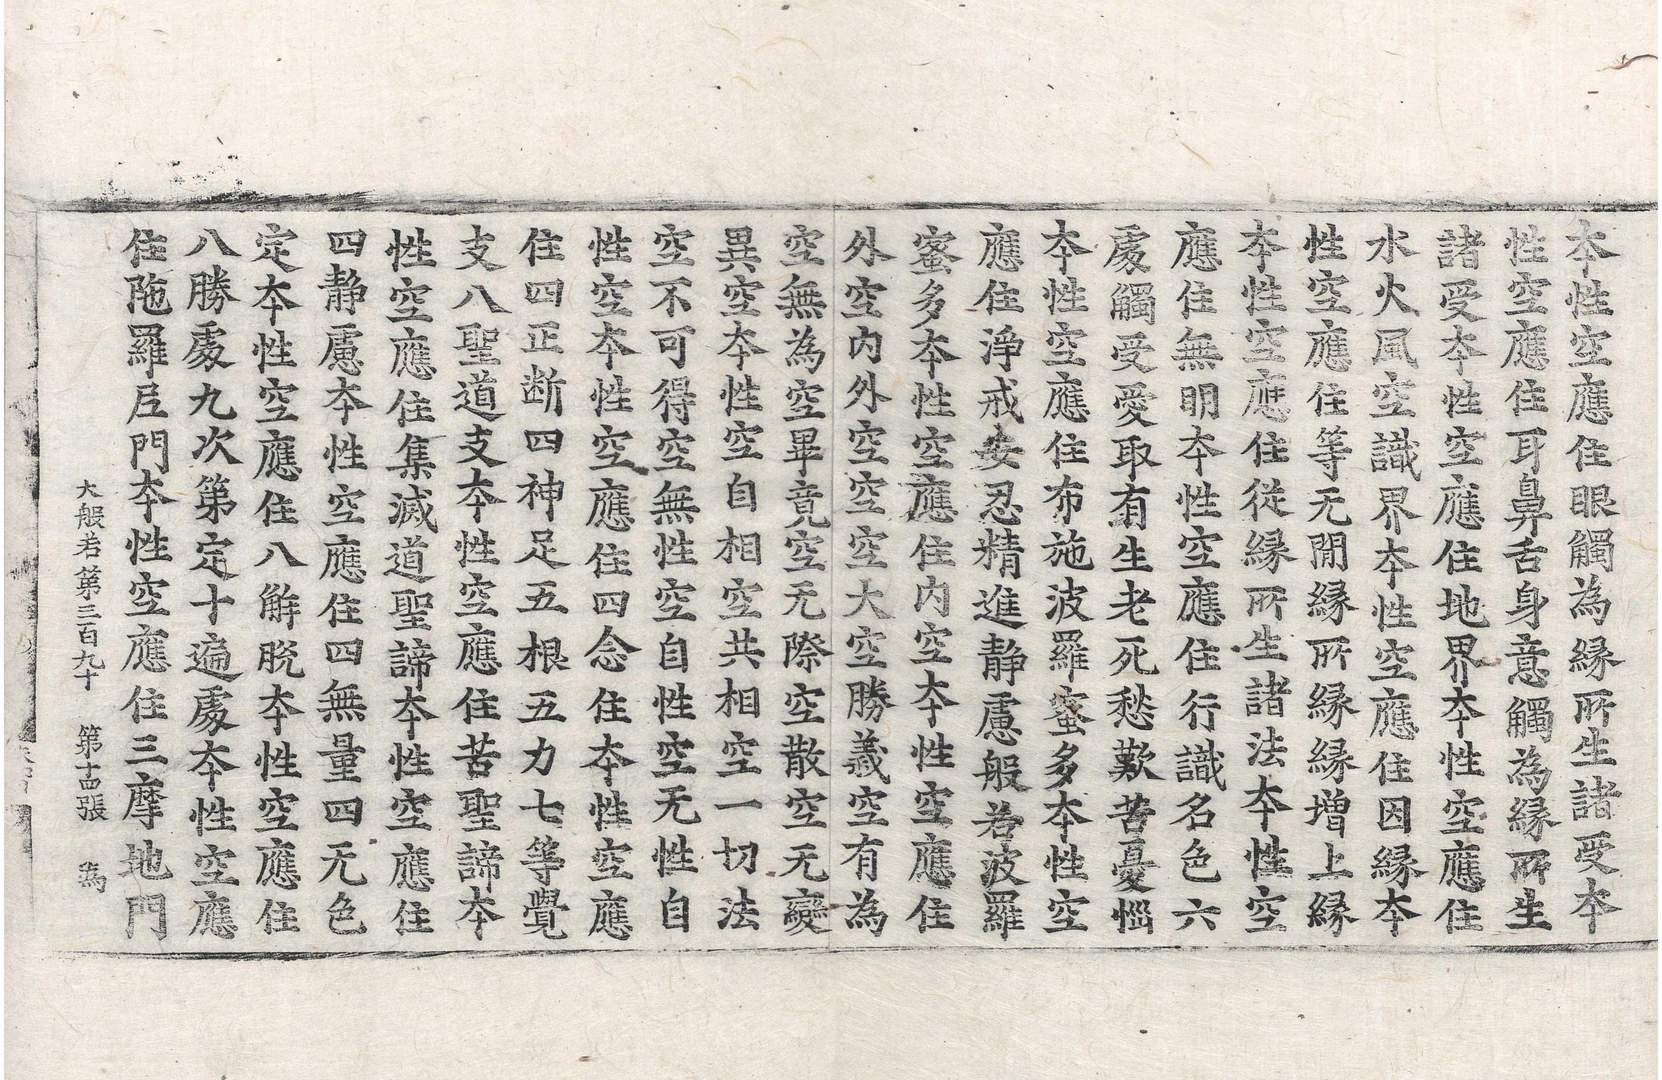 夲性空應住眼觸為縁所生諸受夲
性空應住耳鼻舌身意觸為縁所生
諸受夲性空應住地界夲性空應住
水火風空識界夲性空應住因縁夲
性空應住等无閒縁所縁縁増上縁
夲性空應住從縁所生諸法夲性空
應住無明夲性空應住行識名色六
處觸受愛取有生老死愁歎苦憂惱
夲性空應住布施波羅蜜多夲性空
應住淨戒安忍精進靜慮般若波羅
蜜多夲性空應住内空夲性空應住
外空内外空空空大空勝義空有為
空無為空畢竟空无際空散空无變
異空夲性空自相空共相空一切法
空不可得空無性空自性空无性自
性空夲性空應住四念住夲性空應
住四正断四神足五根五力七等覺
支八聖道支夲性空應住苦聖諦夲
性空應住集滅道聖諦夲性空應住
四靜慮夲性空應住四無量四无色
定夲性空應住八解脱夲性空應住
八勝處九次第定十遍處夲性空應
住陁羅尼門夲性空應住三摩地門
大般若第三百九十　第十四張　為